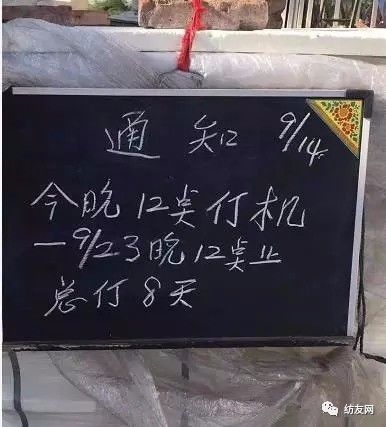 通知 9/14
今晚12奌仃机
—9/23晚12奌止
总仃8天
纺友网